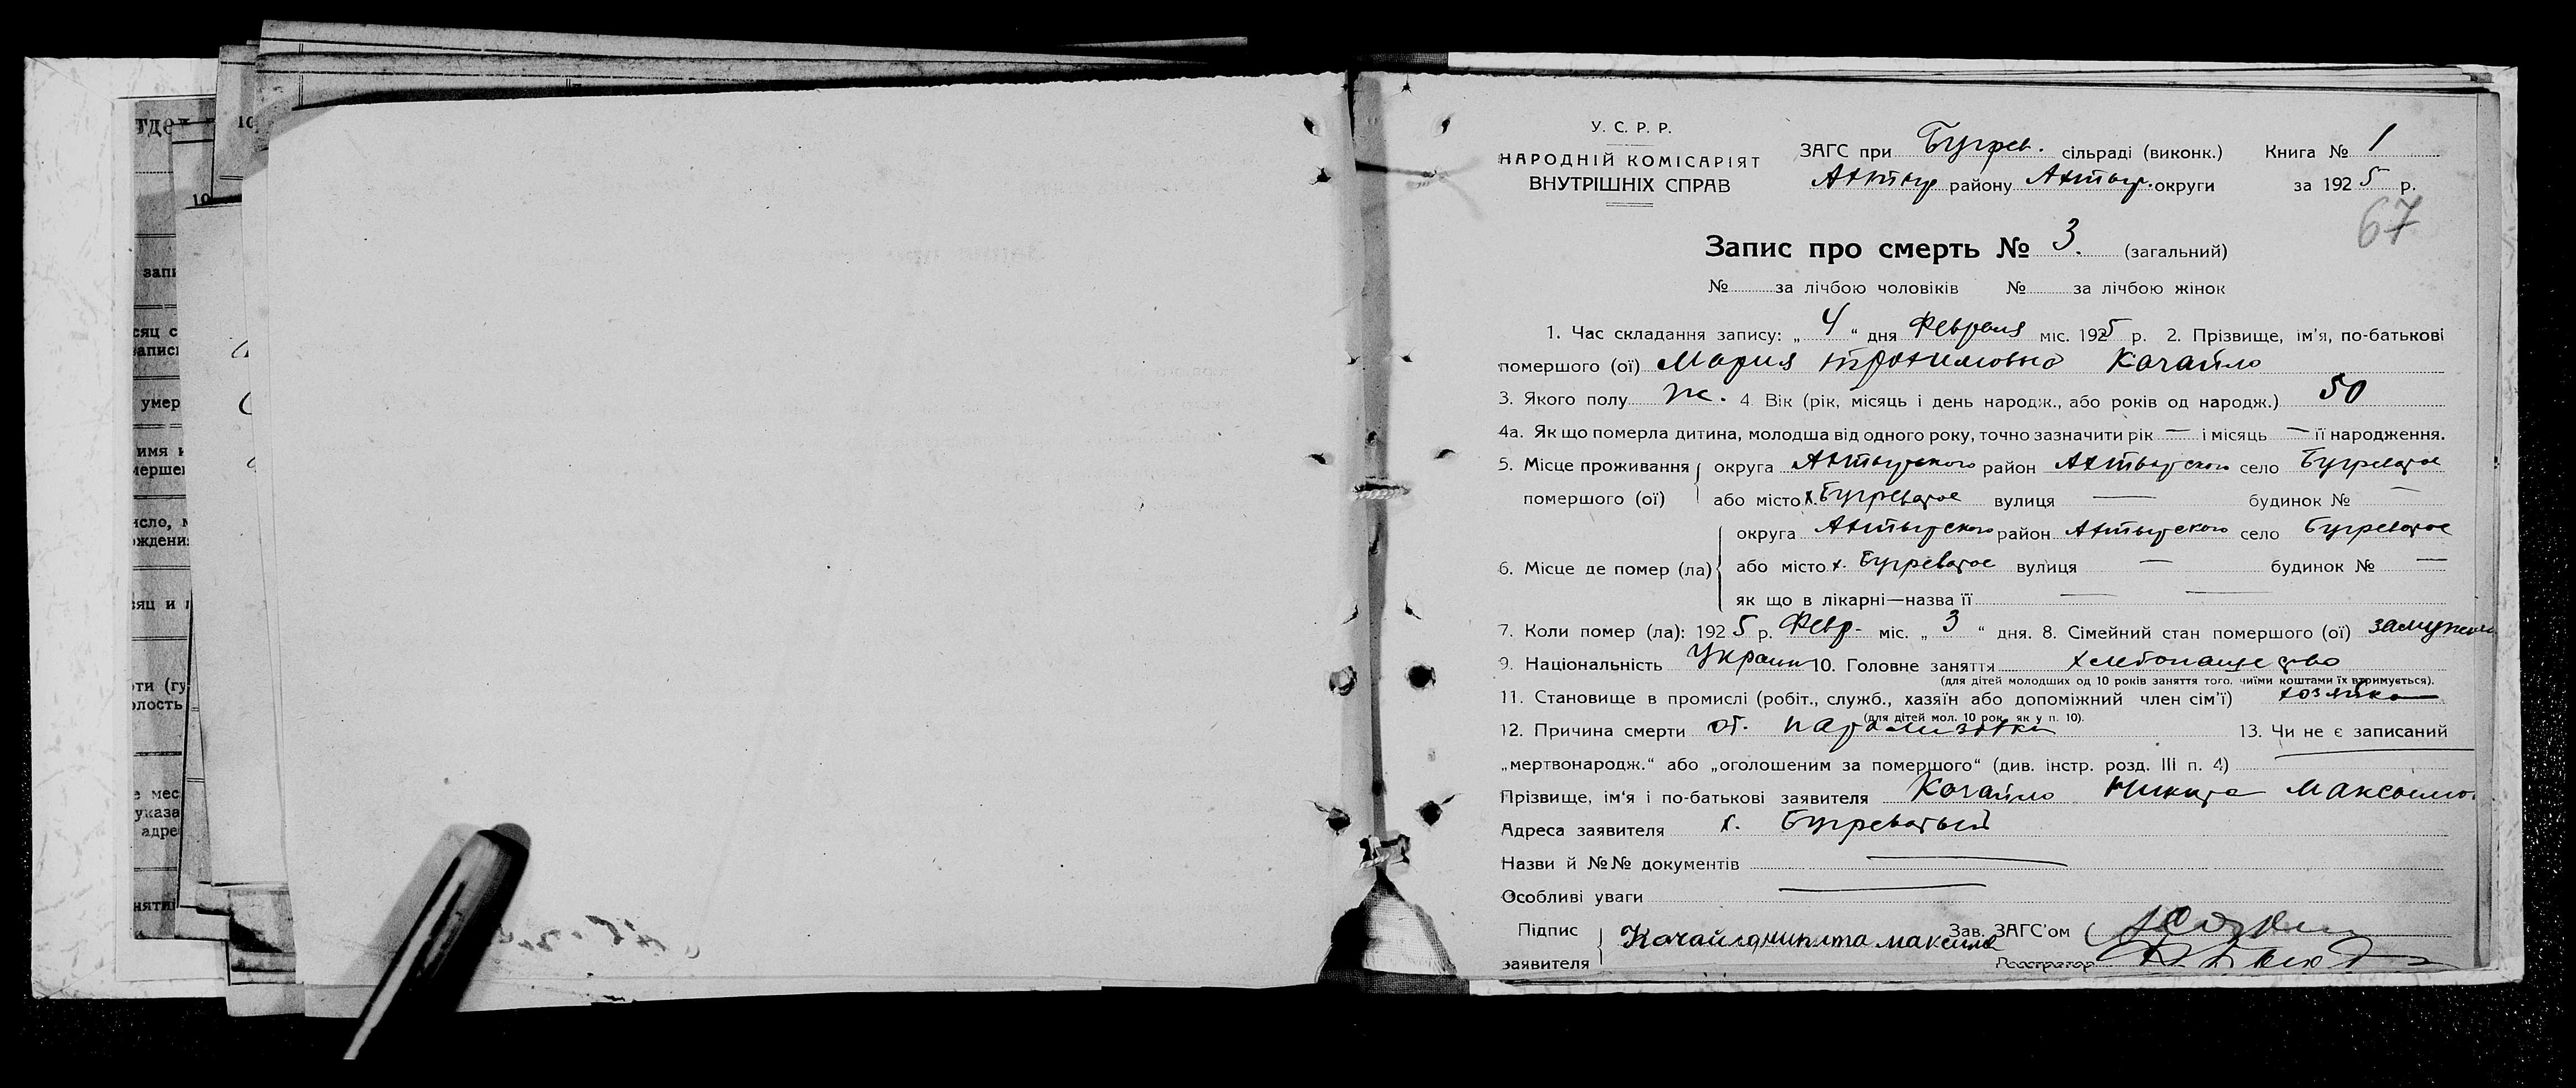 У. С. Р. Р.
НАРОДНІЙ КОМІСАРІЯТ
ВНУТРІШНІХ СПРАВ
ЗАГС при Бугрев. сільраді (виконк.) Книга № 1
Ахтыр району Ахтыр. округи за 1925 р.
67
Запис про смерть № 3. (загальний)
№ за лічбою чоловіків № за лічбою жінок
1. Час складання запису: „ 4 “ дня Февраля міс. 1925 р. 2. Прізвище, ім'я, по-батькові
помершого (ої) Мария Трохимовна Качайло
3. Якого полу ж. 4 Вік (рік, місяць і день народж., або років од народж.) 50
4а. Як що померла дитина, молодша від одного року, точно зазначити рік — і місяць — її народження.
5. Місце проживання округа Ахтырского район Ахтырского село Бугреватое
помершого (ої) або місто х. Бугреватое вулиця — будинок № —
округа Ахтырского район Ахтырского село Бугреватое
6. Місце де помер (ла) або місто х. Бугреватое вулиця — будинок № —
як що в лікарні—назва її — —
7. Коли помер (ла): 1925 р. Февр. міс. „ 3 “ дня. 8. Сімейний стан помершого (ої) замужем
9. Національність Украин 10. Головне заняття хлебопашество
(для дітей молодших од 10 років заняття того, чиїми коштами їх втримується).
11. Становище в промислі (робіт., служб., хазяїн або допоміжний член сім'ї) хозяйка
(для дітей мол. 10 рок. як у п. 10).
12. Причина смерти от 13. Чи не є записаний
„мертвонародж.“ або „оголошеним за помершого“ (див. інстр. розд. III п. 4) —
Прізвище, ім'я і по-батькові заявителя Качайло Никита Максимо.
Адреса заявителя х. Бугреватый
Назви й №№ документів —
Особливі уваги —
Підпис заявителя Качайло никита максимо
Зав. ЗАГС'ом
Реєстратор